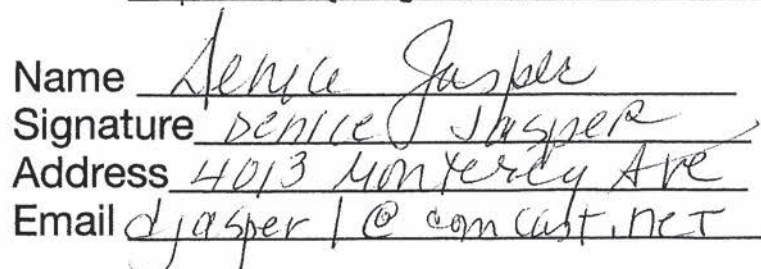 Name Denice Jasper
Signature Denice Jasper
Address 4013 Monterey Ave
Email djasper1@comcast.net